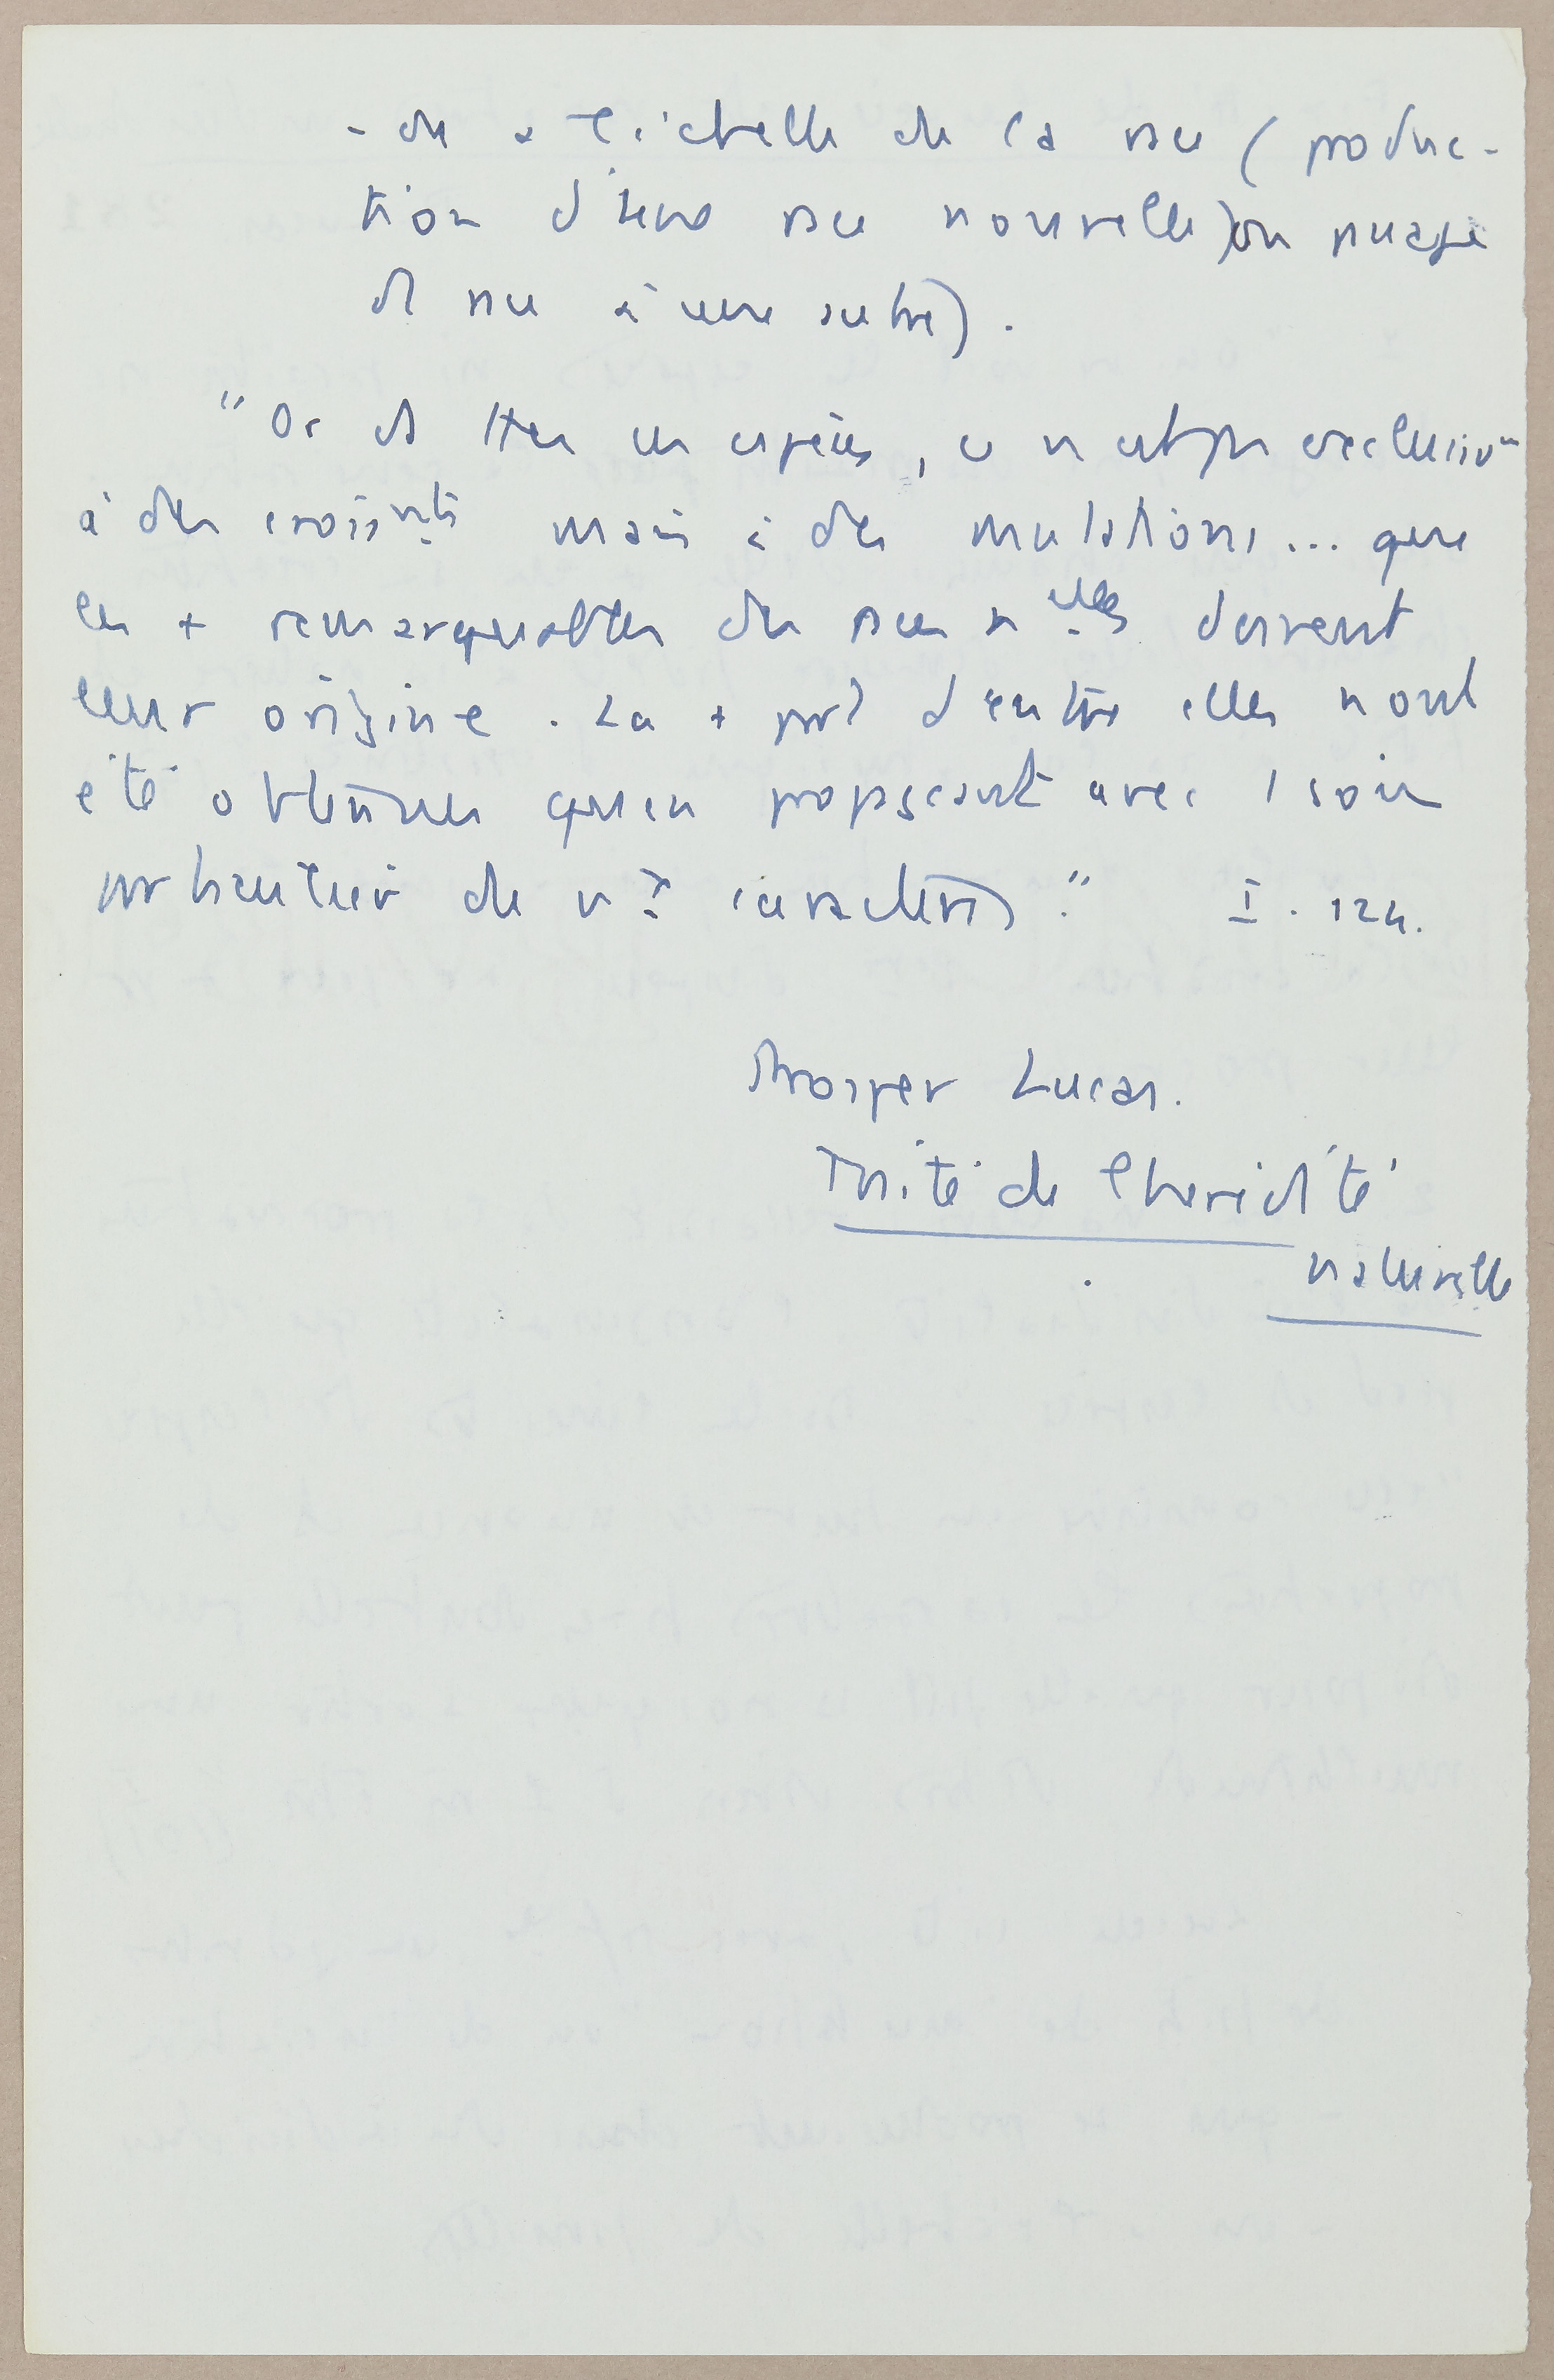 - de à l'échelle de la race (produc-
tion d'une race nouvelle) ou passage
d race à une autre).
"Or ds ttes ces espèces, ce n'est pas exclusivt
à des croisnts mais à des mutations... que
les + remarquables des races nelles doivent
leur origine. La + part d'entre elles n'ont
été obtenues qu'en propageant avec 1 soin
particulier de nx caractères." I. 124.
Prosper Lucas.
Traité de l'hérédité
naturelle